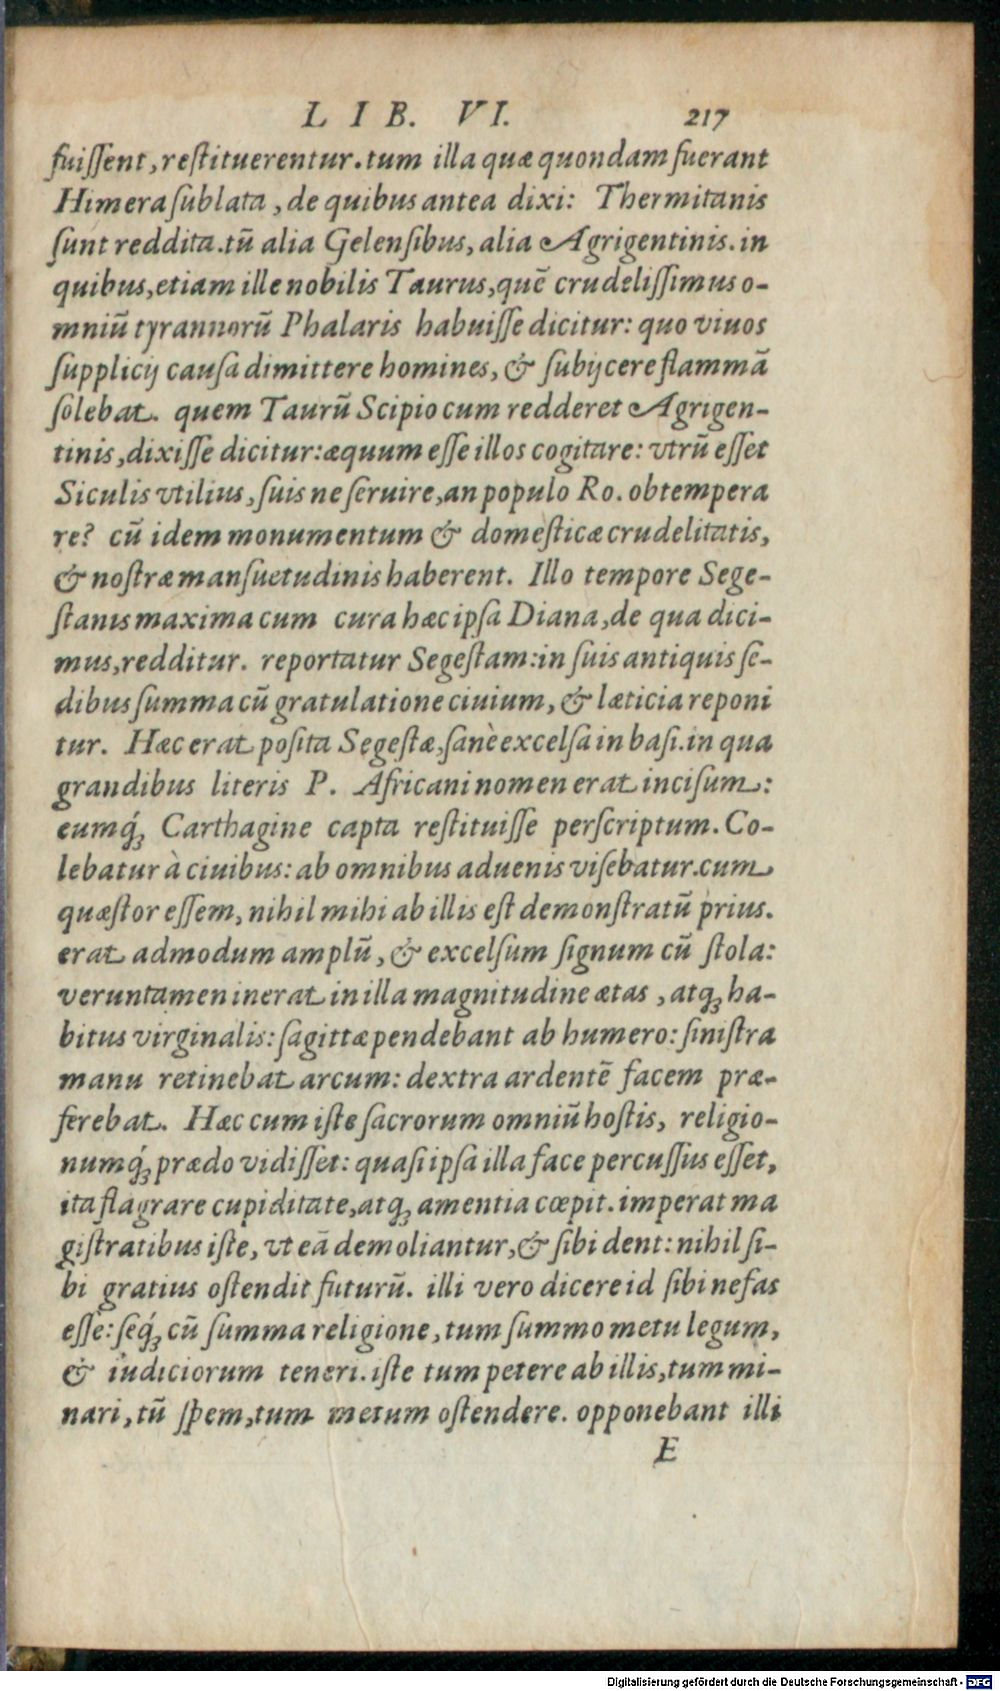 LIB. VI. 217
fuiſſent, reſtituerentur. tum illa quæ quondam fuerant
Himera ſublata, de quibus antea dixi: Thermitanis
ſunt reddita. tū alia Gelenſibus, alia Agrigentinis. in
quibus, etiam ille nobilis Taurus, quē crudeliſſimus o-
mniū tyrannorū Phalaris habuiſſe dicitur: quo viuos
ſupplicij cauſa dimittere homines, & ſubijcere flammā
ſolebat. quem Taurū Scipio cum redderet Agrigen-
tinis, dixiſſe dicitur: æquum eſſe illos cogitare: vtrū eſſet
Siculis vtilius, ſuis ne ſeruire, an populo Ro. obtempera
re? cū idem monumentum & domeſticæ crudelitatis,
& noſtræ manſuetudinis haberent. Illo tempore Sege-
ſtanis maxima cum cura hæc ipſa Diana, de qua dici-
mus, redditur. reportatur Segeſtam: in ſuis antiquis ſe-
dibus ſumma cū gratulatione ciuium, & læticia reponi
tur. Hæc erat poſita Segeſtæ, ſanè excelſa in baſi. in qua
grandibus literis P. Africani nomen erat inciſum:
eumq́ꝫ Carthagine capta reſtituiſſe perſcriptum. Co-
lebatur à ciuibus: ab omnibus aduenis viſebatur. cum
quæſtor eſſem, nihil mihi ab illis eſt demonſtratū prius.
erat admodum amplū, & excelſum ſignum cū ſtola:
veruntamen inerat in illa magnitudine ætas, atqꝫ ha-
bitus virginalis: ſagittæ pendebant ab humero: ſiniſtra
manu retinebat arcum: dextra ardentē facem præ-
ferebat. Hæc cum iſte ſacrorum omniū hoſtis, religio-
numq́ꝫ prædo vidiſſet: quaſi ipſa illa face percuſſus eſſet,
ita flagrare cupiditate, atqꝫ amentia cœpit. imperat ma
giſtratibus iſte, vt eā demoliantur, & ſibi dent: nihil ſi-
bi gratius oſtendit futurū. illi vero dicere id ſibi nefas
eſſe: ſeq́ꝫ cū ſumma religione, tum ſummo metu legum,
& iudiciorum teneri. iſte tum petere ab illis, tum mi-
nari, tū ſpem, tum metum oſtendere. opponebant illi
E
Digitalisierung gefördert durch die Deutsche Forschungsgemeinschaft - DFG